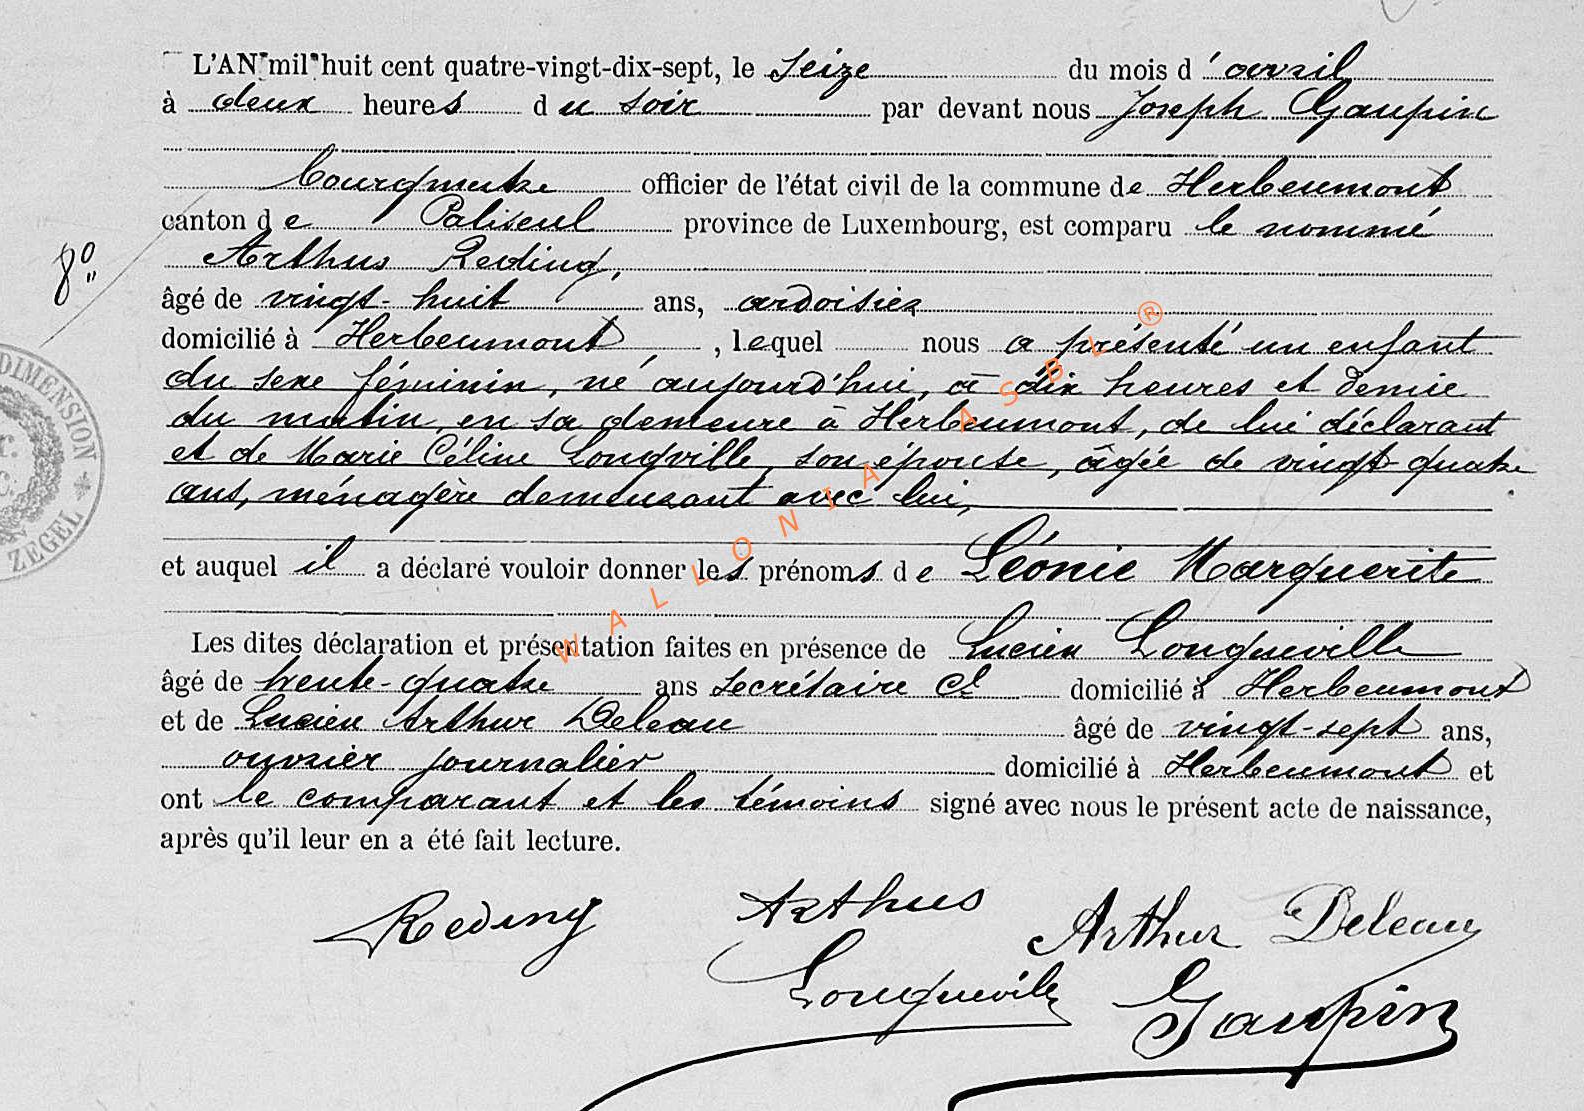 L'AN mil huit cent quatre-vingt-dix-sept, le seize du mois d'avril
à deux heures du soir par devant nous Joseph Gaupin
Bourgmestre officier de l'état civil de la commune de Herbeumont
canton de Paliseul province de Luxembourg, est comparu le nommé
8°
Arthus Reding,
âgé de vingt-huit ans, ardoisier
domicilié à Herbeumont, lequel nous a présenté un enfant
du sexe féminin, né aujourd'hui, à dix heures et demie
du matin, en sa demeure à Herbeumont, de lui déclarant
et de Marie Céline Longville, son épouse, âgée de vingt-quatre
ans, ménagère demeurant avec lui,
et auquel il a déclaré vouloir donner les prénoms de Léonie Marguerite
Les dites déclaration et présentation faites en présence de Lucien Longueville
âgé de trente-quatre ans secrétaire Cl domicilié à Herbeumont
et de Lucien Arthur Deleau âgé de vingt-sept ans,
ouvrier journalier domicilié à Herbeumont et
ont le comparant et les témoins signé avec nous le présent acte de naissance,
après qu'il leur en a été fait lecture.
Reding Arthus Arthur Deleau
Longueville Gaupin
DIMENSION
ZEGEL
WALLONIA ASBL ®